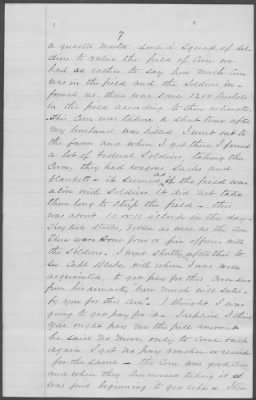 7
a quarter master sent a squad of sol-
diers to value the field of Corn we
had or rather to say how much Corn
was in the field and the Soldiers in-
formed us there was some 1200 bushels
in the field according to their estimate.
This Corn was taken a short time after
my husband was killed. I went out to
the farm and when I got there I found
a lot of Federal Soldiers, taking the
Corn, they had wagons Sacks and
blankets - it as if the field was
alive with Soldiers it did not take
them long to strip the field - this
was about 10 or 11 o'clock in the day -
They took Stalks, fodder as well as the Corn
There were some four or five officers with
the Soldiers. I went shortly after this to
see Capt Blake with whom I was well
acquainted, to get pay for this Corn and
from his remarks how much will satis-
fy you for this Corn". I thought I was
going to get pay for it. I replied I think
you might pay me the full amount
he said No more, only to come back
again I got no pay voucher or receipt
for the same - the Corn was good Corn
and when they commenced taking it it
was just beginning to get ripe - There